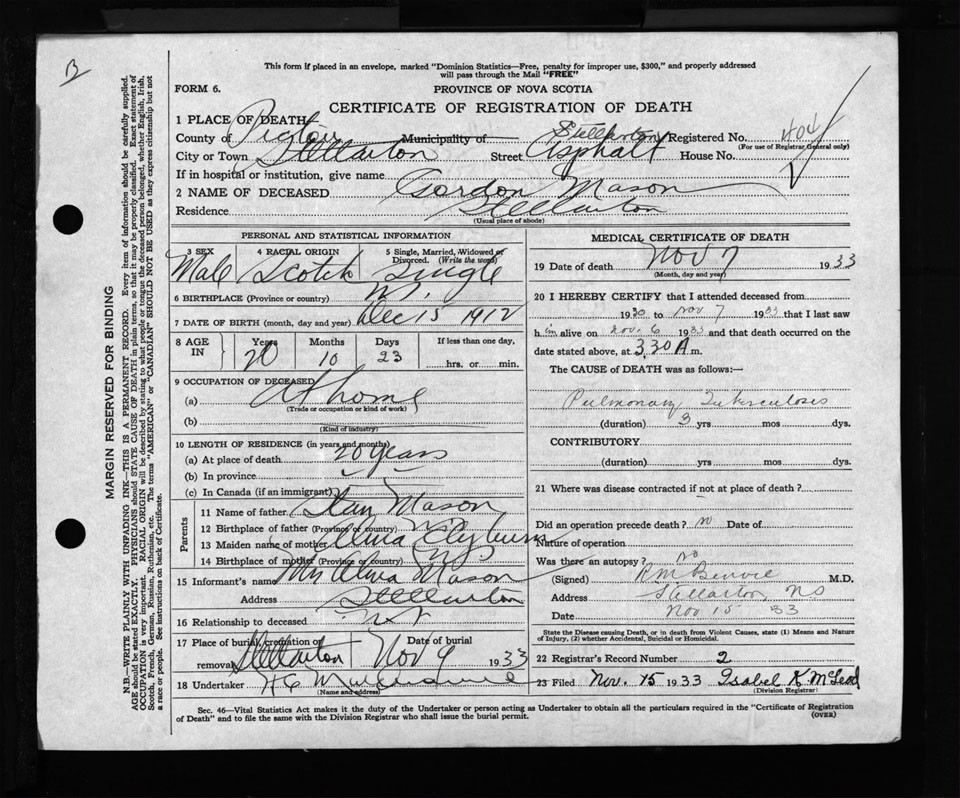 B
This form if placed in an envelope, marked "Dominion Statistics—Free, penalty for improper use, $300," and properly addressed
will pass through the Mail "FREE"
FORM 6.
PROVINCE OF NOVA SCOTIA
CERTIFICATE OF REGISTRATION OF DEATH
1 PLACE OF DEATH
County of Pictou Municipality of Stellarton Registered No. 404
(For use of Registrar General only)
City or Town Stellarton Street Asphalt House No.
If in hospital or institution, give name
2 NAME OF DECEASED Gordon Mason
Residence Stellarton
(Usual place of abode)
PERSONAL AND STATISTICAL INFORMATION
3 SEX 4 RACIAL ORIGIN 5 Single, Married, Widowed or
Divorced. (Write the word)
Male Scotch Single
6 BIRTHPLACE (Province or country) N.S.
7 DATE OF BIRTH (month, day and year) Dec 15 1912
8 AGE IN Years Months Days If less than one day,
20 10 23 hrs. or min.
9 OCCUPATION OF DECEASED
(a) At home
(Trade or occupation or kind of work)
(b)
(Kind of industry)
10 LENGTH OF RESIDENCE (in years and months)
(a) At place of death 20 years
(b) In province
(c) In Canada (if an immigrant)
Parents
11 Name of father Mason
12 Birthplace of father (Province or country) NS
13 Maiden name of mother
14 Birthplace of mother (Province or country) NS
15 Informant's name Mrs Mason
Address Stellarton
16 Relationship to deceased
17 Place of burial, cremation or removal Stellarton Date of burial Nov 9 1933
18 Undertaker H C
(Name and address)
MEDICAL CERTIFICATE OF DEATH
19 Date of death Nov 7 1933
(Month, day and year)
20 I HEREBY CERTIFY that I attended deceased from
1930 to Nov 7 1933 that I last saw
him alive on Nov. 6 1933 and that death occurred on
date stated above, at 3.30 A m.
The CAUSE of DEATH was as follows:—
Pulmonary Tuberculosis
(duration) 3 yrs mos dys.
CONTRIBUTORY
(duration) yrs mos dys.
21 Where was disease contracted if not at place of death?
Did an operation precede death? no Date of
Nature of operation
Was there an autopsy? no
(Signed) M.D.
Address Stellarton, NS
Date Nov 15 33
State the Disease causing Death, or in death from Violent Causes, state (1) Means and Nature
of Injury, (2) whether Accidental, Suicidal or Homicidal.
22 Registrar's Record Number 2
23 Filed Nov. 15 1933 Isabel K McLeod
(Division Registrar)
Sec. 46—Vital Statistics Act makes it the duty of the Undertaker or person acting as Undertaker to obtain all the particulars required in the "Certificate of Registration
of Death" and to file the same with the Division Registrar who shall issue the burial permit.
(OVER)
MARGIN RESERVED FOR BINDING
N.B.—WRITE PLAINLY WITH UNFADING INK—THIS IS A PERMANENT RECORD. Every item of information should be carefully supplied.
AGE should be stated EXACTLY. PHYSICIANS should STATE CAUSE OF DEATH in plain terms, so that it may be properly classified. Exact statement of
OCCUPATION is very important. RACIAL ORIGIN will be described by stating to what people or tongue the deceased person belonged, whether English, Irish,
Scotch, French, German, Russian, Ruthenian, etc. The terms "AMERICAN" or "CANADIAN" SHOULD NOT BE USED as they express citizenship but not
a race or people. See instructions on back of Certificate.